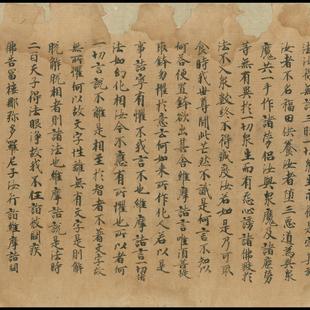 汝者不名福田供養汝者墮三惡道為與眾
魔共一手作諸勞侶汝與眾魔及諸塵勞
等無有異於一切眾生而有怨心謗諸佛毀於
法不入眾數終不得滅度汝若如是乃可取
食時我世尊聞此茫然不識是何言不知以
何答便置鉢欲出其舍維摩詰言唯須菩提
取鉢勿懼於意云何如來所作化人若以是
事詰寧有懼不我言不也維摩詰言一切諸
法如幻化相汝今不應有所懼也所以者何
一切言說不離是相至於智者不著文字故
無所懼何以故文字性離無有文字是則解
脫解脫相者則諸法也維摩詰說是法時
二百天子得法眼淨故我不任詣彼問疾
佛告富樓那彌多羅尼子汝行詣維摩詰問